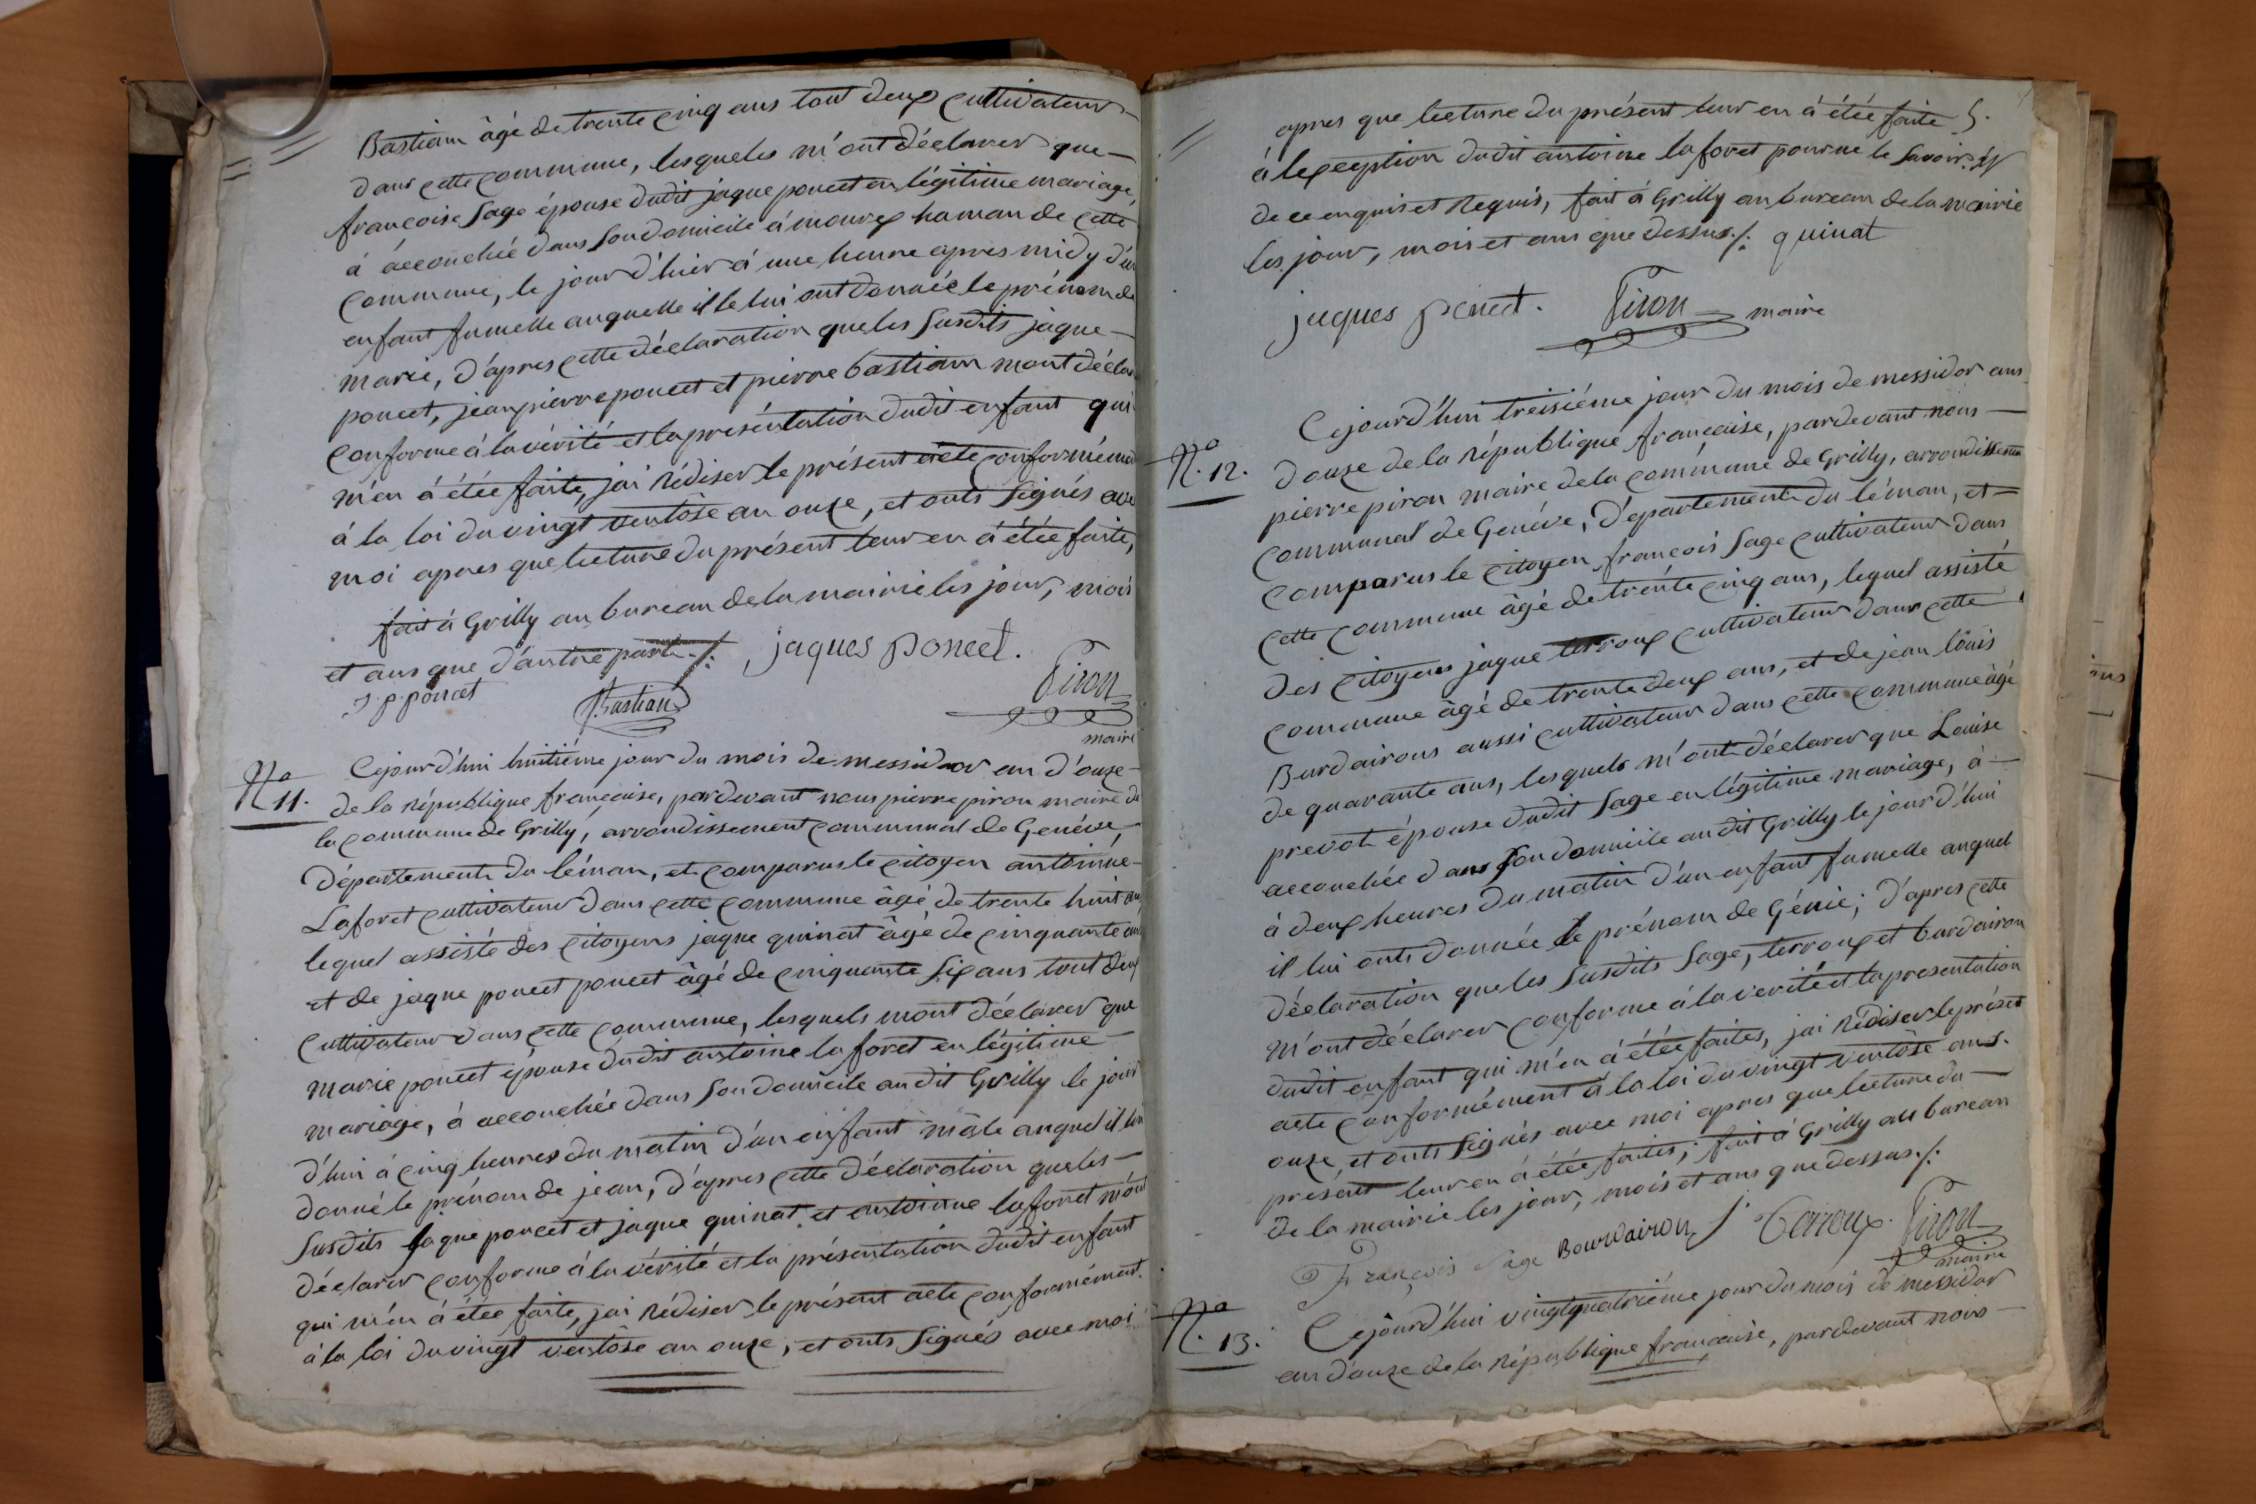 Bastian âgé de trente cinq ans tout deux cultivateur
dans cette commune, lesqueles m'ont déclarer que
françoise Sage épouse dudit jaque poncet en légitime mariage,
à accouchée dans son domicile à mourex haman de cette
commune, le jour d'hier à une heure apres midy d'un
enfant fumelle auquelle il le lui ont donnée le prénom de
marie, d'apres cette déclaration que les susdits jaque
poncet, jean pierre poncet et pierre bastian mont déclar
conforme à la vérité et la présentation dudit enfant qui
m'en à étée faite, jai rédiser le présent acte conformémen
à la loi du vingt ventôse an onze, et onts signés avec
moi apres que lecture du présent leur en à étée faite,
fait à Grilly au bureau de la mairie les jour, mois
et ans que d'autre part ./.
jaques poncet.
J p poncet
Bastian
Piron
maire
N.o 11.
Cejourd'hui huitiéme jour du mois de messidor an d'ouze
de la république francaise, pardevant nous pierre piron maire de
la commune de Grilly, arrondissement communal de Genéve,
Département du léman, et comparus le citoyen antoinne
Laforet cultivateur dans cette commune âgé de trente huit ans
lequel assisté des citoyens jaque quinat âgé de cinquante ans
et de jaque poncet poncet âgé de cinquante six ans tout deux
cultivateur dans cette commune, lesquels mont déclarer que
marie poncet épouse dudit antoine laforet en légitime
mariage, à accouchée dans son domicile audit Grilly le jour
d'hui à cinq heures du matin d'un enfant mâsle auquel il lui
donné le prénom de jean, d'apres cette déclaration queles
susdits jaque poncet et jaque quinat et antoinne laforet m'ont
déclarer conforme à la vérité et la présentation dudit enfant
qui m'en à étée faite, jai rédiser le présent acte conformément
à la loi du vingt ventôse an onze, et onts signés avec moi
apres que lecture du présent leur en à étée faite
à lexception dudit antoine laforet pour ne le savoir
de ce enquis et Requis, fait à Grilly au bureau de la mairie
les jour, mois et ans que dessus ./. quinat
jaques poncet. Piron maire
N.o 12.
Cejourd'hui treisiéme jour du mois de messidor ans
douze de la république francaise, pardevant nous
pierre piron maire de la commune de Grilly, arrondissement
communal de Genéve, Département du léman, et
comparus le citoyen françois Sage cultivateur dans
cette commune âgé de trente cinq ans, lequel assisté
des citoyens jaque terroux cultivateur dans cette
commune âgé de trente deux ans, et de jean louis
Burdairons aussi cultivateur dans cette commune âgé
de quarante ans, lesquels m'ont déclarer que Louise
prevot épouse dudit Sage en légitime mariage, à
accouchée dans son domicile audit Grilly le jour d'hui
à deux heures du matin d'un enfant fumelle auquel
il lui onts donnée le prénom de Génie; d'apres cette
déclaration que les susdits Sage, terroux et burdairon
m'ont déclarer conforme à la verité et la presentation
dudit enfant qui m'en à étée faites, jai rédiser le présent
acte conformément à la loi du vingt ventôse ans.
onze, et onts signés avec moi apres que lecture du
présent leur en à étée faites; fait à Grilly au bureau
de la mairie les jour, mois et ans que dessus ./.
François Sage Bourdairon J. Terroux. Piron
maire
N.o 13.
Cejourd'hui vingtquatriéme jour du mois de messidor
an douze de la république francaise, pardevant nous